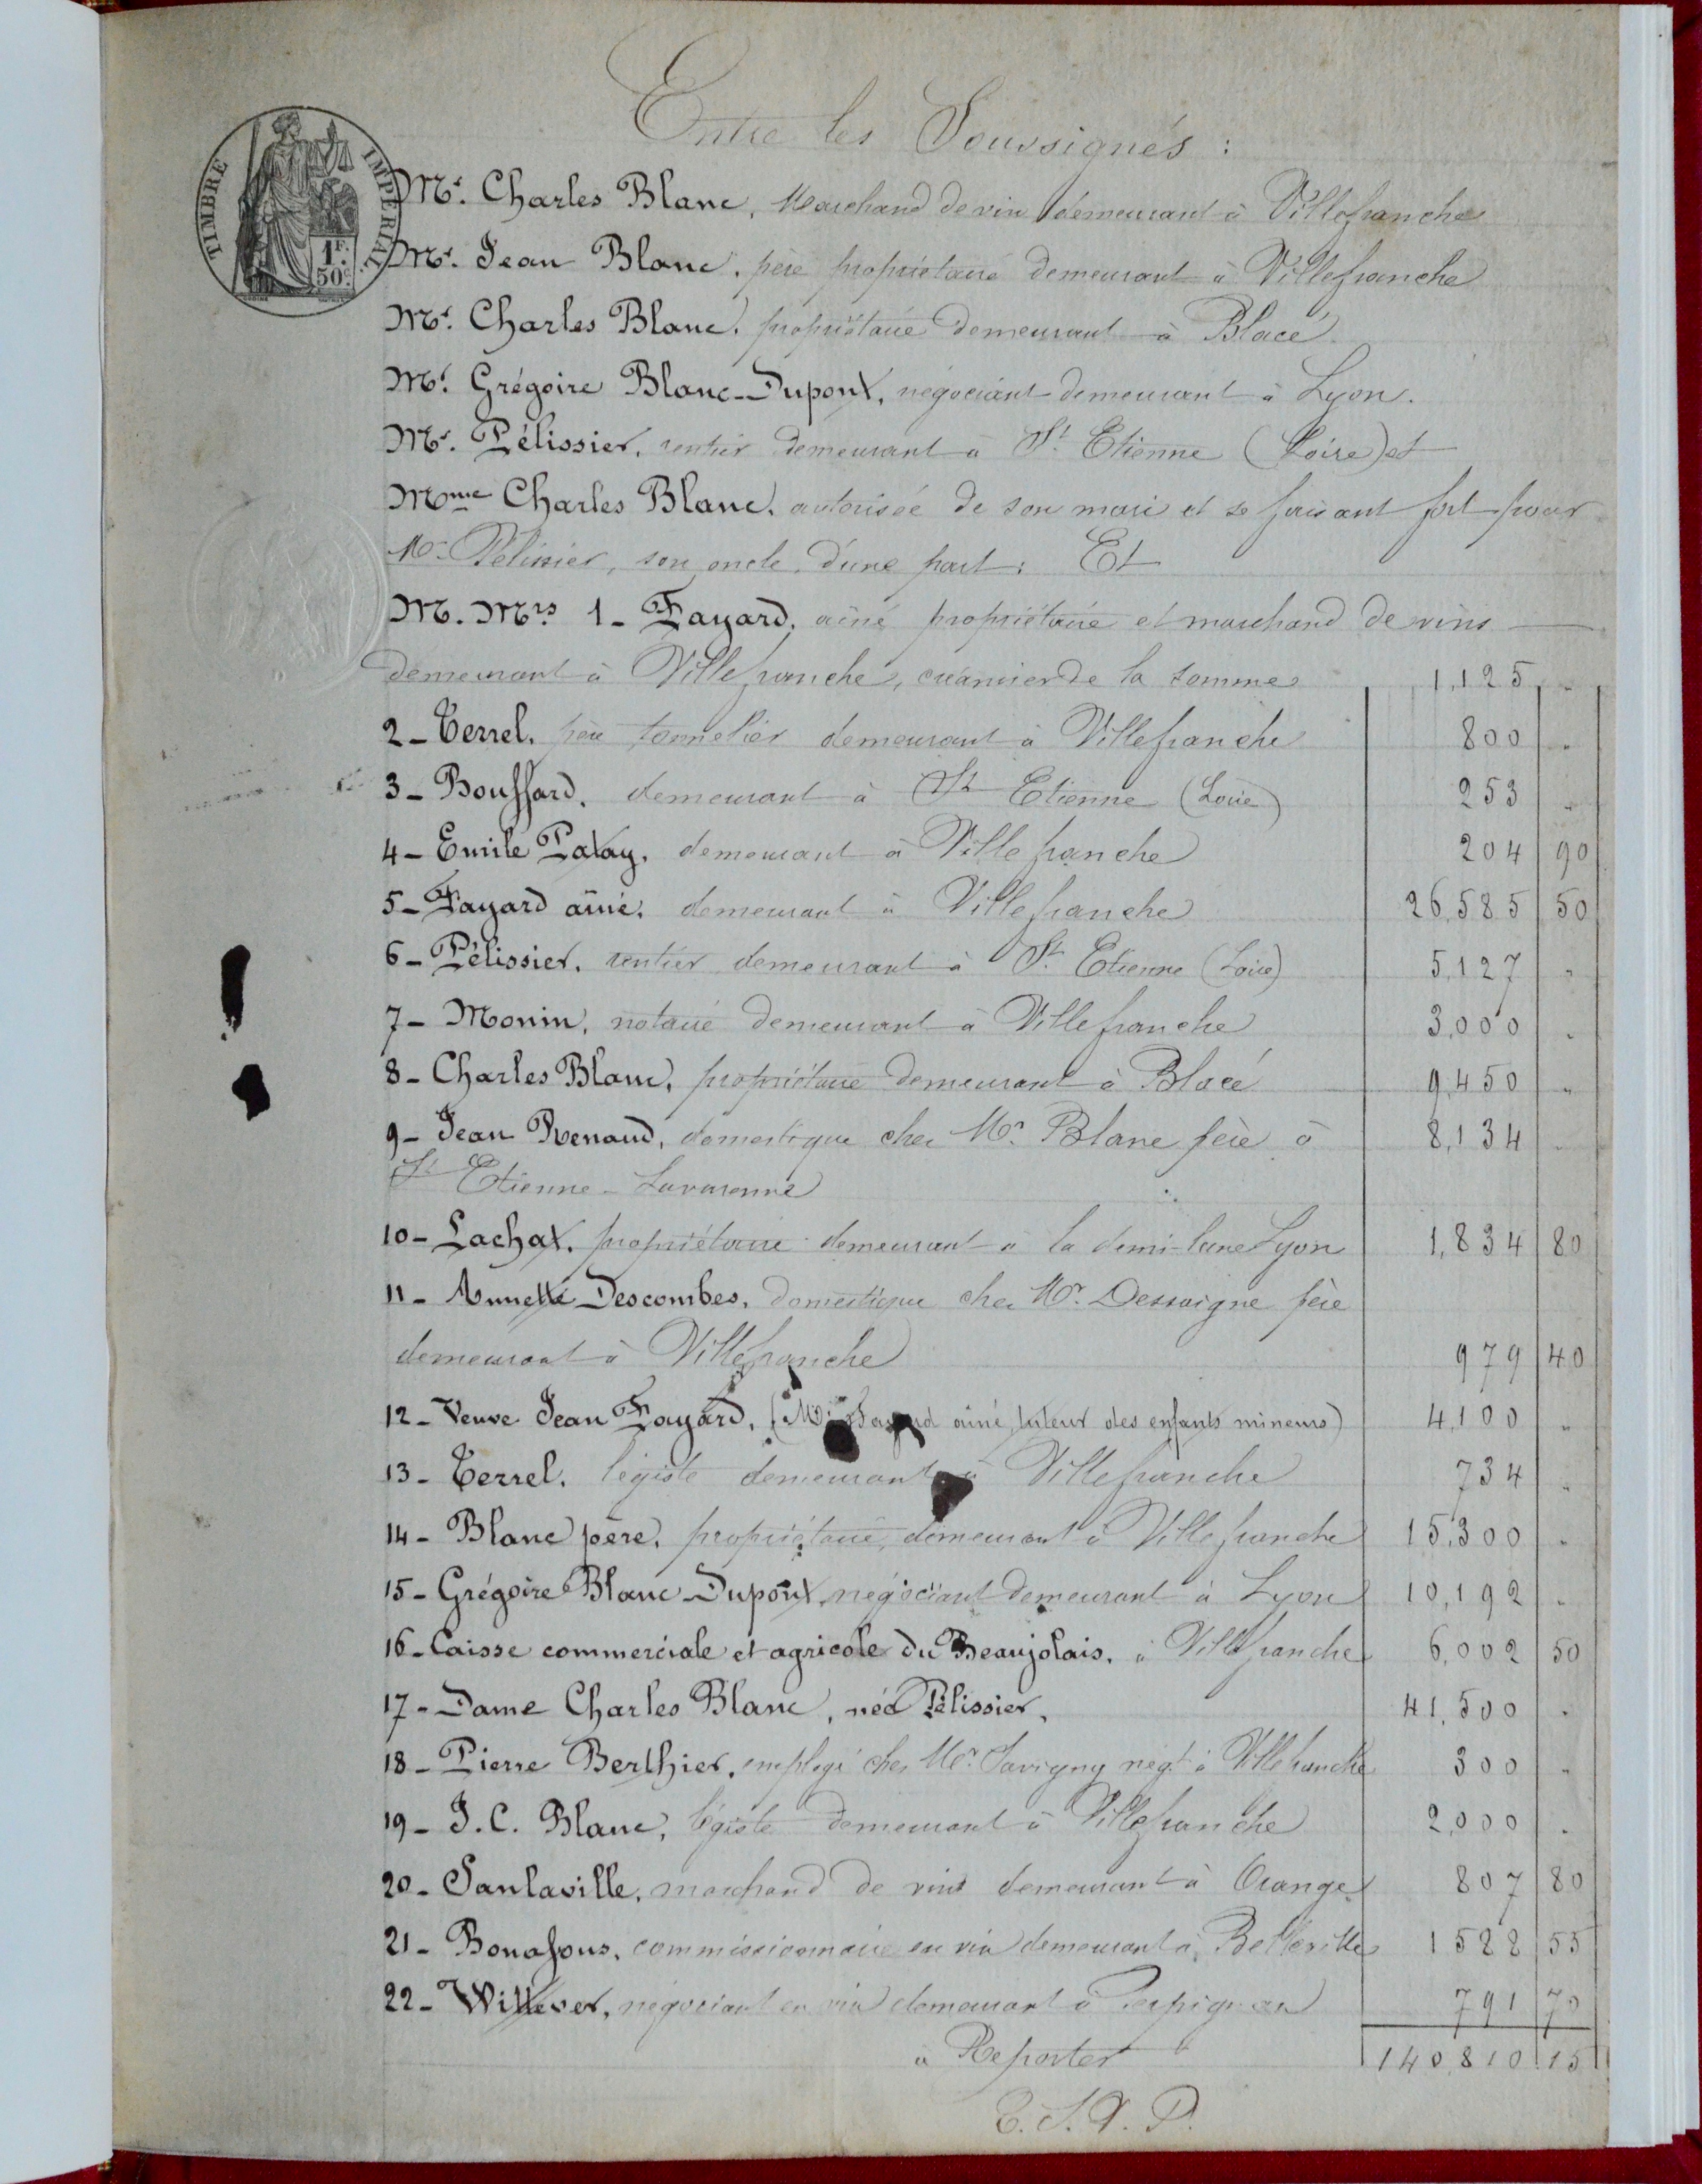 Entre les Soussignés :
TIMBRE IMPÉRIAL
1F.
50c.
Mr. Charles Blanc, Marchand de vin demeurant à Villefranche
Mr. Jean Blanc, père propriétaire demeurant à Villefranche
Mr. Charles Blanc, propriétaire demeurant à Blacé
Mr. Grégoire Blanc-Dupont, négociant demeurant à Lyon.
Mr. Pélissier, rentier demeurant à St. Etienne (Loire) et
Mme Charles Blanc, autorisée de son mari et se faisant fort pour
Mr. Pelissier, son oncle, d'une part; Et
M. Mrs 1 - Fayard, aîné propriétaire et marchand de vins
demeurant à Villefranche, créancier de la somme 1,125 "
2 - Terrel, père tonnelier demeurant à Villefranche 800 "
3 - Bouffard, demeurant à St Etienne (Loire) 253 "
4 - Emile Patay, demeurant à Villefranche 204 90
5 - Fayard aîné, demeurant à Villefranche 26,585 50
6 - Pélissier, rentier demeurant à St. Etienne (Loire) 5,127 "
7 - Monin, notaire demeurant à Villefranche 3,000 "
8 - Charles Blanc, propriétaire demeurant à Blacé 9,450 "
9 - Jean Renaud, domestique chez Mr. Blanc père à 8,134 "
St Etienne - Lavarenne
10 - Lachat, propriétaire demeurant à la demi-lune Lyon 1,834 80
11 - Annette Descombes, domestique chez Mr. Dessaigne père
demeurant à Villefranche 979 40
12 - Veuve Jean Fayard, (Mr. Fayard aîné, tuteur des enfants mineurs) 4,100 "
13 - Terrel, légiste demeurant à Villefranche 734 "
14 - Blanc père, propriétaire, demeurant à Villefranche 15,300 "
15 - Grégoire Blanc-Dupont, négociant demeurant à Lyon 10,192 "
16 - Caisse commerciale et agricole du Beaujolais, à Villefranche 6,002 50
17 - Dame Charles Blanc, née Pélissier, 41,500 "
18 - Pierre Berthier, employé chez Mr. Savigny négt. à Villefranche 300 "
19 - J. C. Blanc, légiste demeurant à Villefranche 2,000 "
20 - Sanlaville, marchand de vins demeurant à Orange 807 80
21 - Bonafous, commissionnaire en vin demeurant à Belleville 1588 55
22 - négociant en vin demeurant à Perpignan 791 70
à Reporter 140,810 15
T. S. V. P.